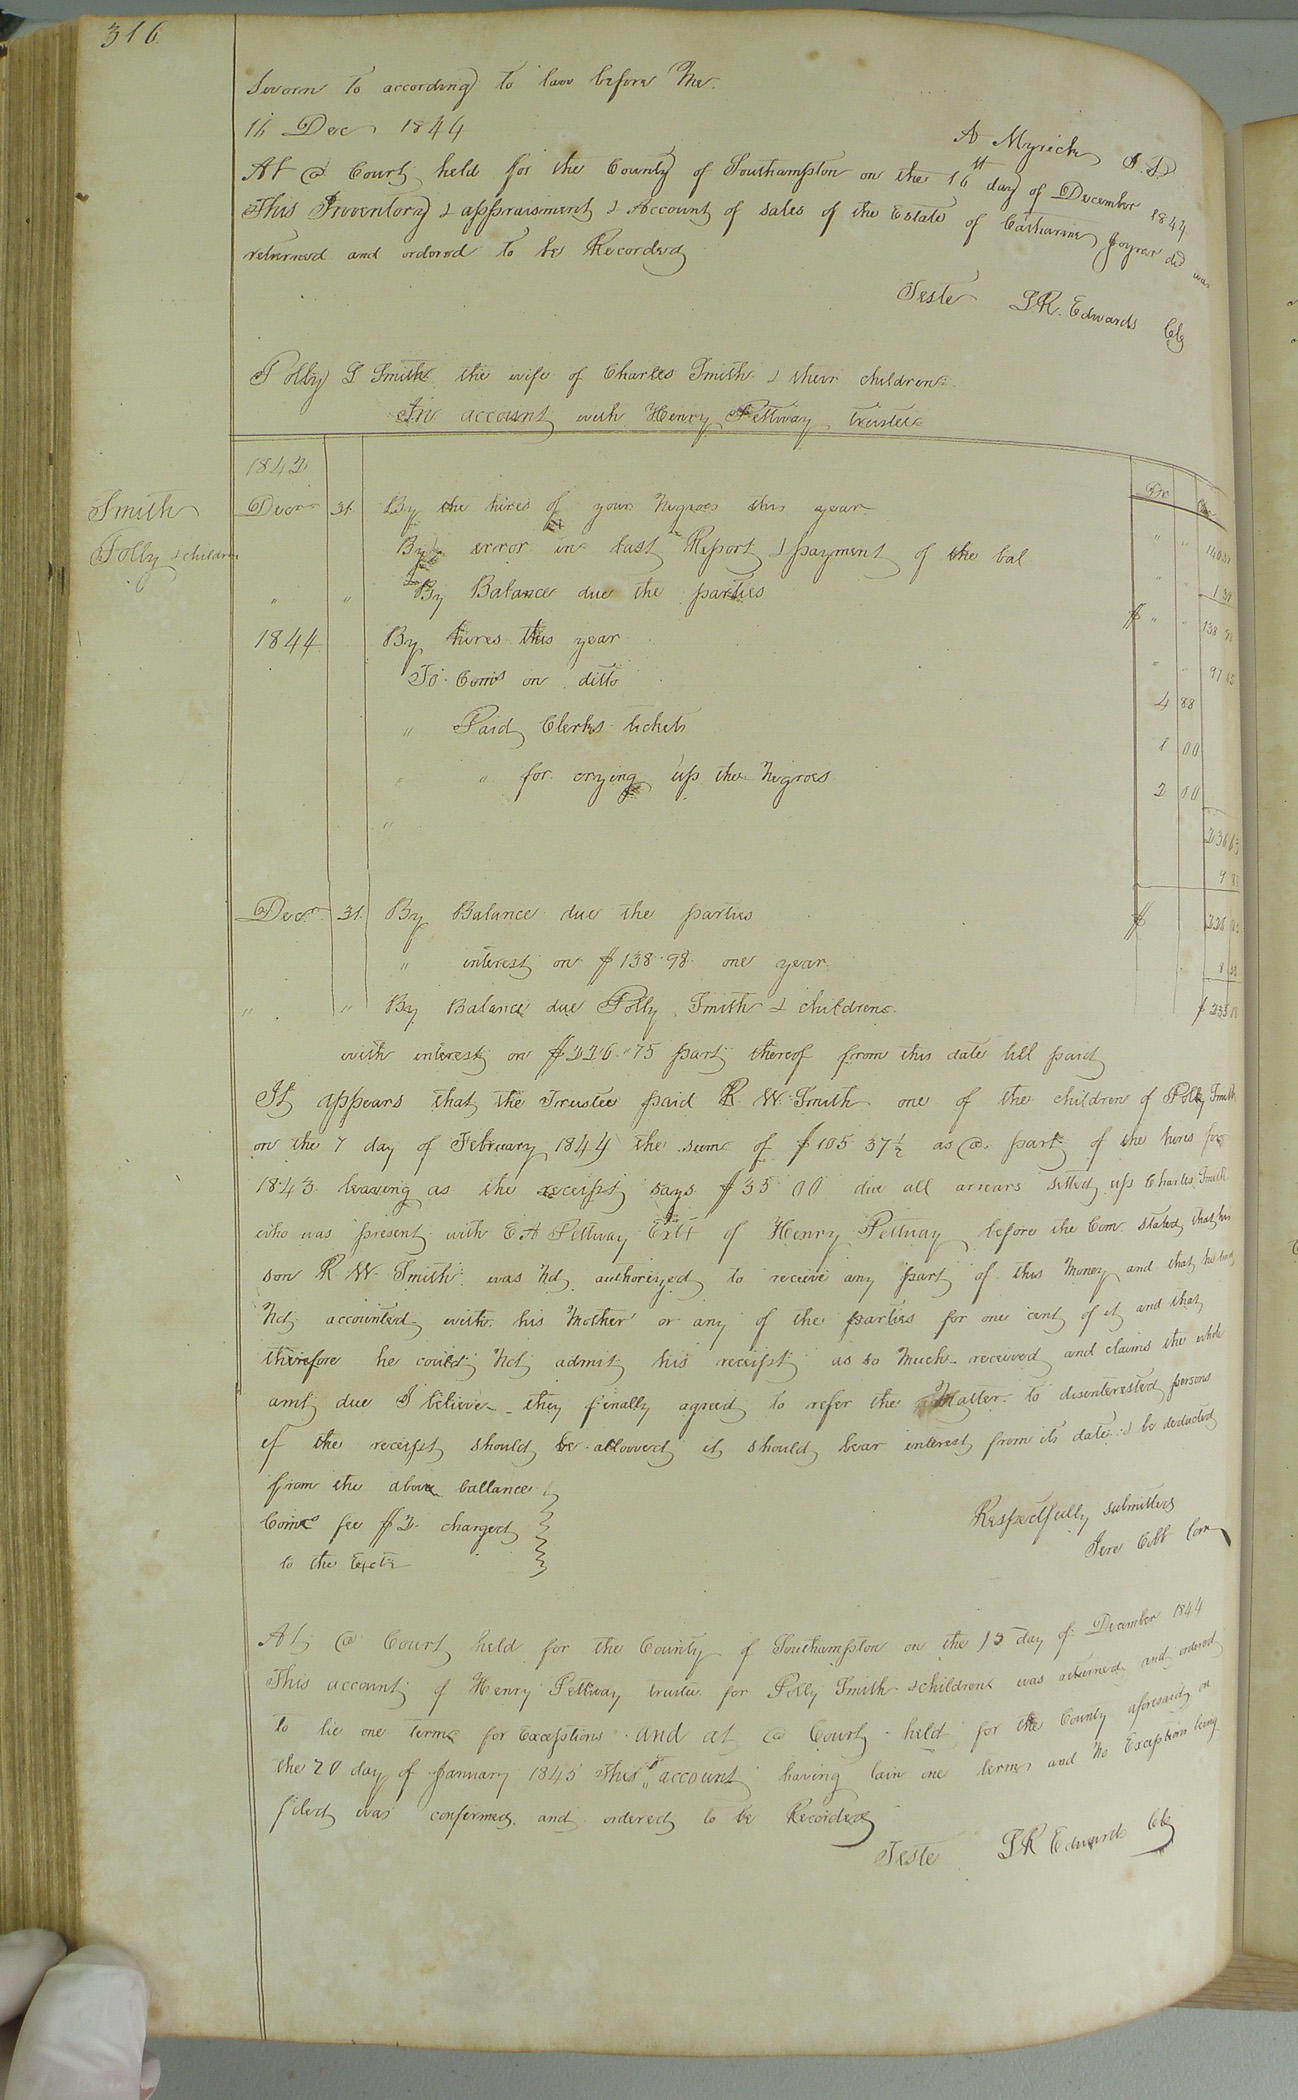 316
Sworn to according to law before Me
16 Dec 1844
A Myrick J.P
At a Court held for the County of Southampton on the 16th day of December 1844
This Inventory & appraisment & Account of sales of the Estate of Catharine Joyner decd was
returned and ordered to be Recorded
Teste LR. Edwards Clk
Polly S Smith the wife of Charles Smith & their children
In account with Henry Pettway trustee
1843 Dr Cr
Smith Decr 31 By the hires of your Negroes this year " "
Polly & children By error in last Report & payment of the bal " " 1
" " By Balance due the parties $ " " 138 98
1844 By hires this year " " 97 65
To Coms on ditto 4 88
" Paid Clerks tickets 1 00
" " for crying up the Negroes 2 00
"
236 63
Decr 31 By Balance due the parties $
" interest on $138.98 one year 8
" " By Balance due Polly Smith & children $ 235
with interest on $226.75 part thereof from this date till paid
It appears that the Trustee paid R. W. Smith one of the children of Polly Smith
on the 7 day of February 1844 the sum of $105 37½ as a part of the hires for
1843 leaving as the receipt says $35 00 due all arrears settled up Charles Smith
who was present with E A Pettway Exr of Henry Pettway before the Com. stated that his
son R W. Smith was Not authorized to receive any part of this Money and that he had
Not accounted with his Mother or any of the parties for one cent of it and that
therefore he could Not admit his receipt as so Much received and claims the whole
amt due I believe they finally agreed to refer the Matter to disenterested persons
if the receipt should be allowed it should bear interest from its date & be deducted
from the above ballance
Coms fee $2. charged Respectfully submitted
to the Exctr Jere Cobb Com
At a Court held for the County of Southampton on the 15 day of December 1844
This account of Henry Pettway trustee for Polly Smith & children was returned and ordered
to lie one term for Exceptions and at a Court held for the County aforesaid on
the 20 day of January 1845 This account having lain one term and No Exceptions being
filed was confirmed and ordered to be Recorded
Teste LR Edwards Clk